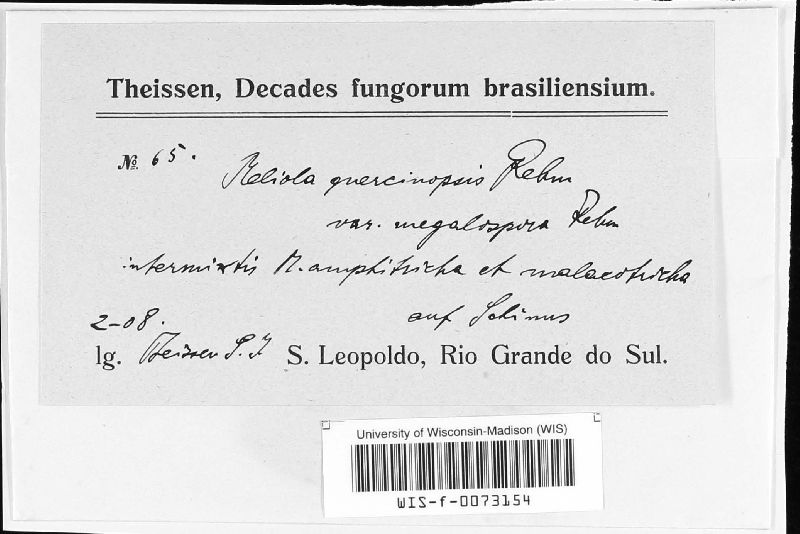 Theissen, Decades fungorum brasiliensium.
№ 65.
Meliola quercinopsis Rehm
var. megalospora Rehm
intermixtis M. amphitricha et malacotricha
auf Schinus
2-08.
lg. Theissen S. J. S. Leopoldo, Rio Grande do Sul.
University of Wisconsin-Madison (WIS)
WIS-f-0073154